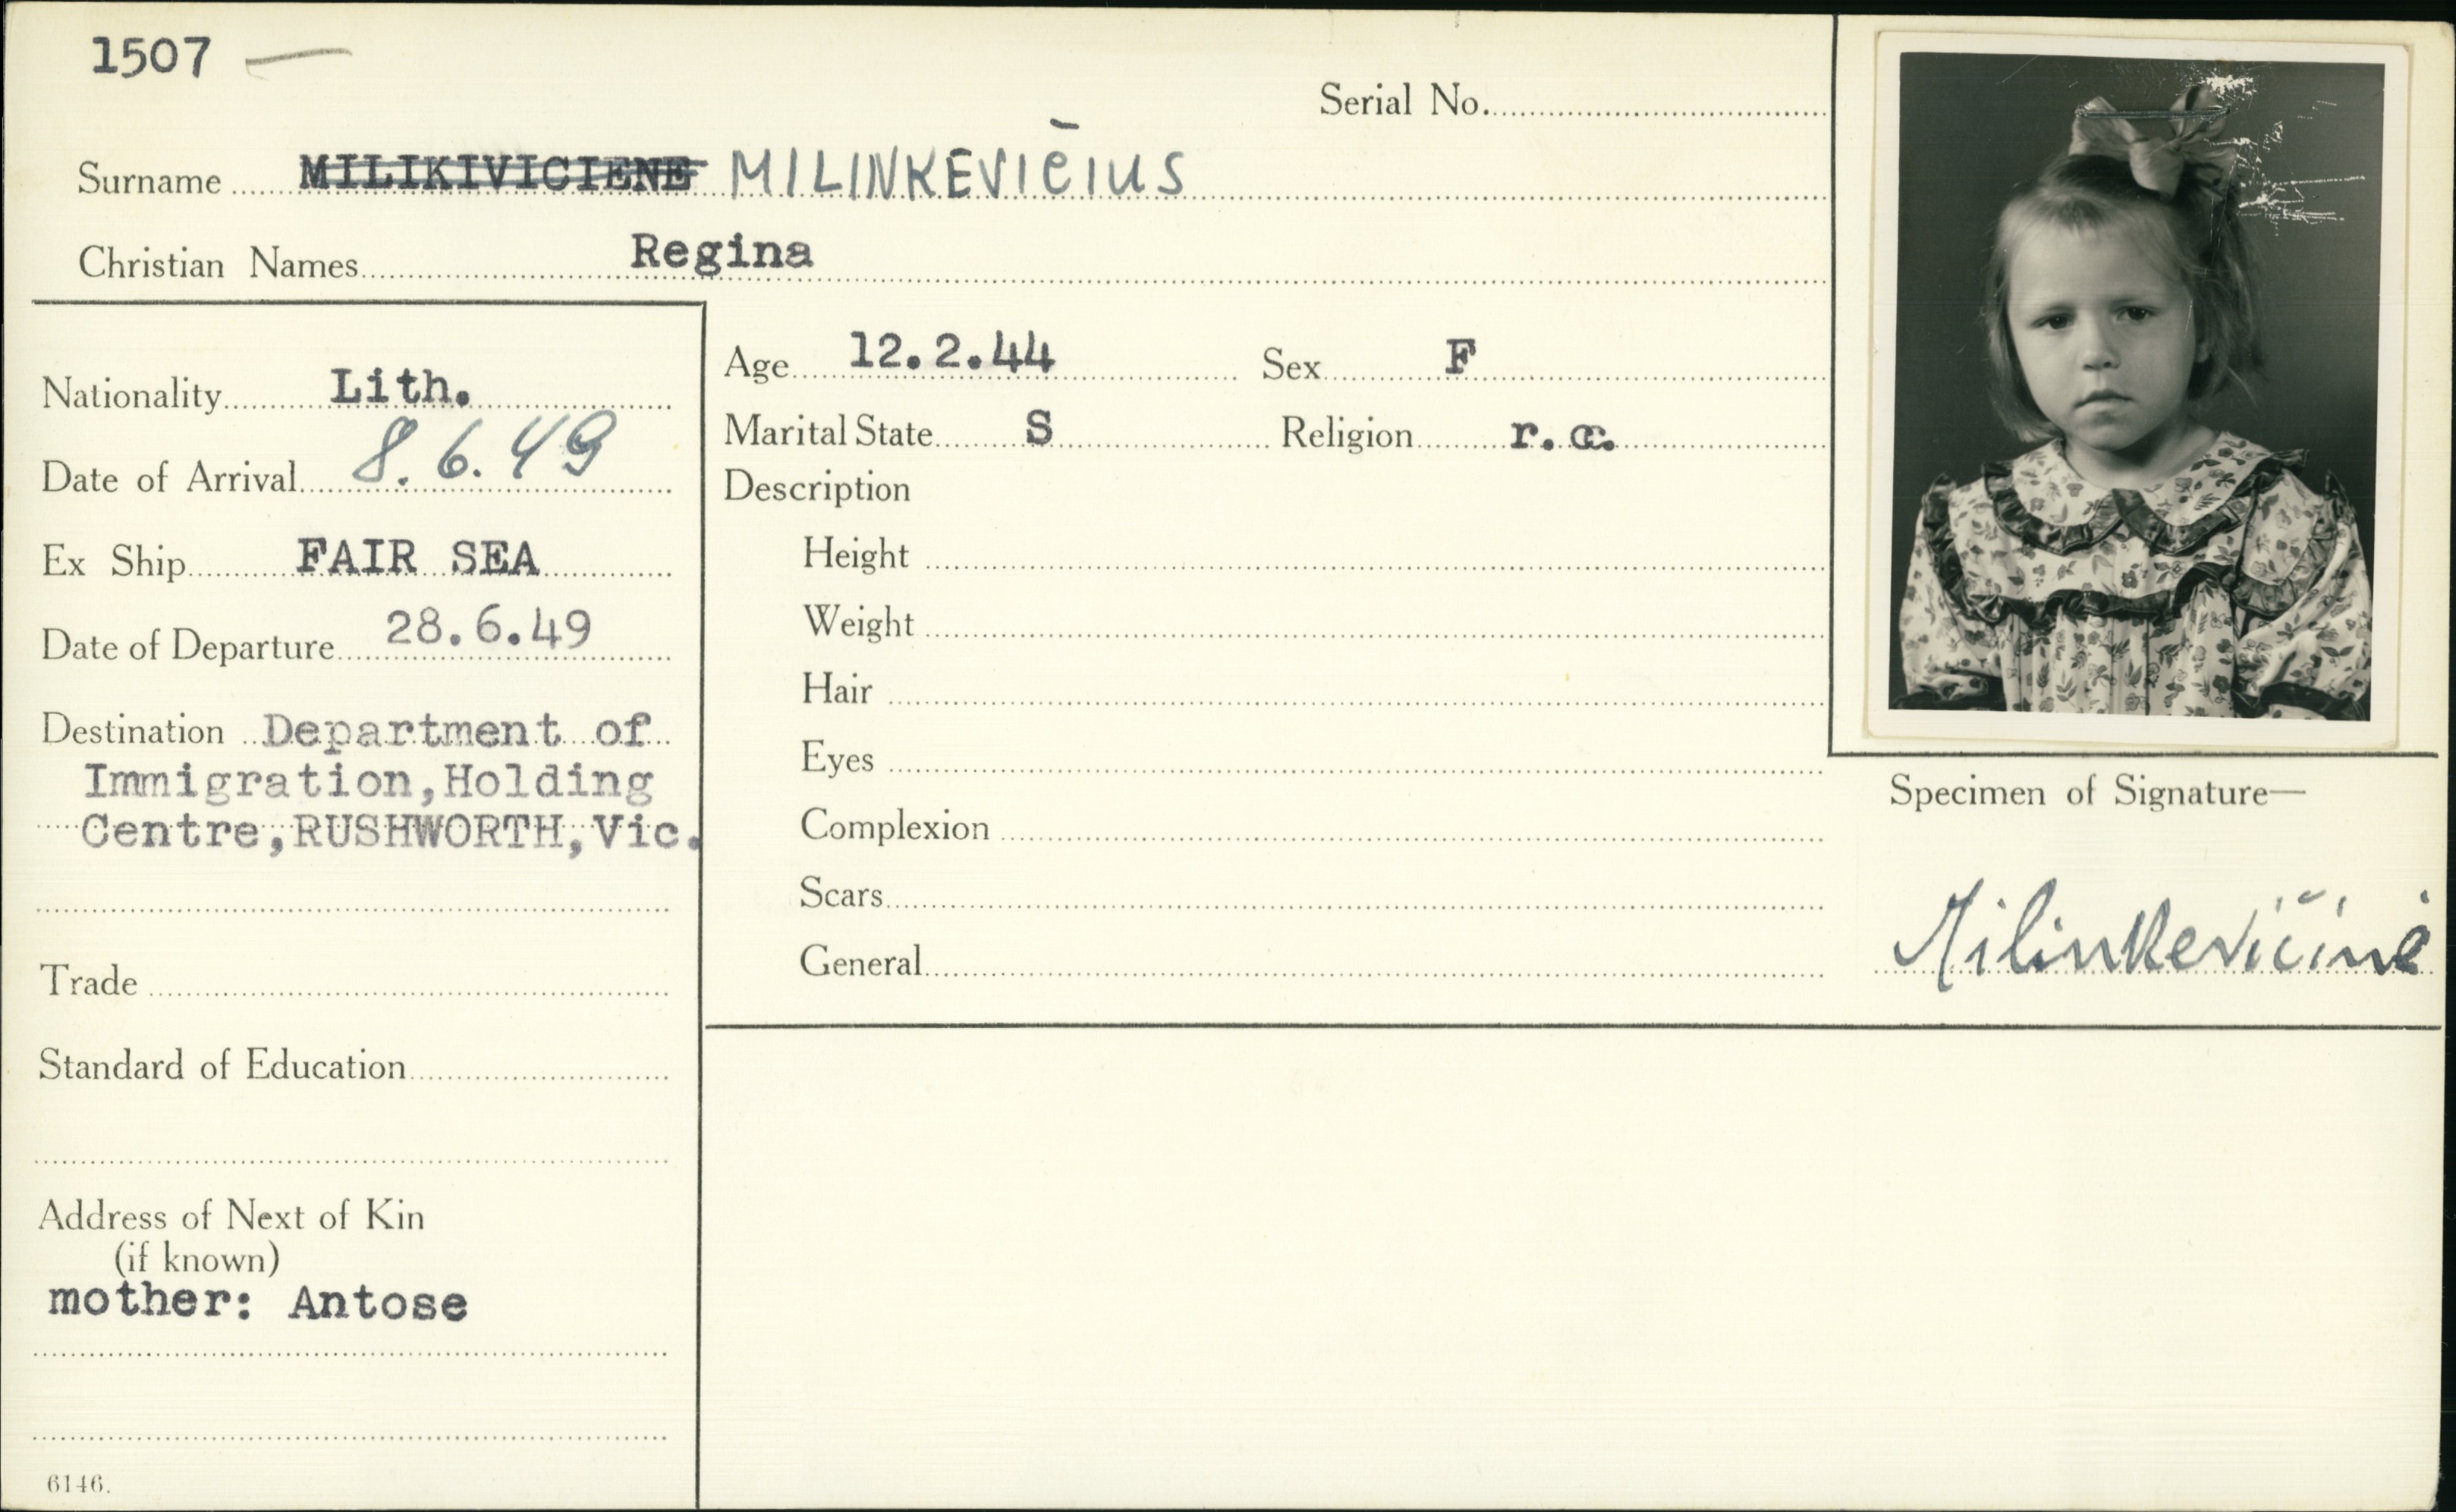 1507 —
Serial No.
Surname MILIKIVICIENE MILINKEVIČIUS
Christian Names Regina
Nationality Lith.
Date of Arrival 8.6.49
Ex Ship FAIR SEA
Date of Departure 28.6.49
Destination Department of
Immigration,Holding
Centre,RUSHWORTH,Vic.
Trade
Standard of Education
Address of Next of Kin
(if known)
mother: Antose
6146.
Age 12.2.44 Sex F
Marital State S Religion r.c.
Description
Height
Weight
Hair
Eyes
Complexion
Scars
General
Specimen of Signature—